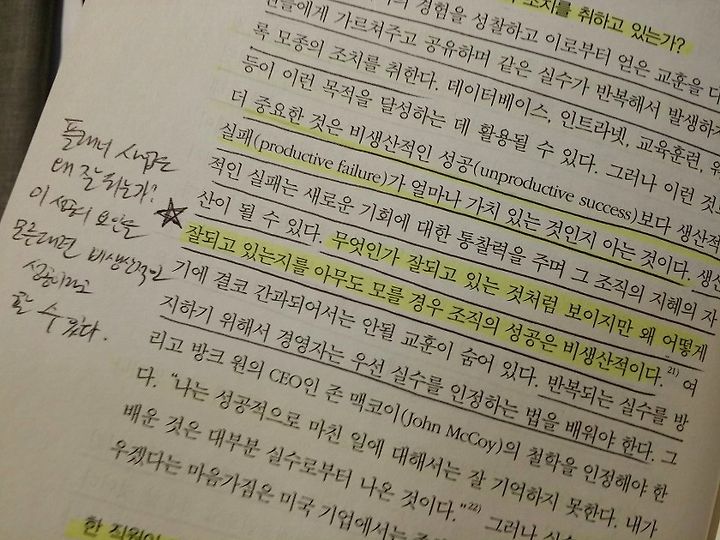 조치를 취하고 있는가?
경험을 성찰하고 이로부터 얻은 교훈을 다
들에게 가르쳐주고 공유하며 같은 실수가 반복해서 발생하
록 모종의 조치를 취한다. 데이터베이스, 인트라넷, 교육훈련, 워
등이 이런 목적을 달성하는 데 활용될 수 있다. 그러나 이런 것
더 중요한 것은 비생산적인 성공(unproductive success)보다 생산적
실패(productive failure)가 얼마나 가치 있는 것인지 아는 것이다. 생산
적인 실패는 새로운 기회에 대한 통찰력을 주며 그 조직의 지혜의 자
산이 될 수 있다. 무엇인가 잘되고 있는 것처럼 보이지만 왜 어떻게
잘되고 있는지를 아무도 모를 경우 조직의 성공은 비생산적이다.21) 여
기에 결코 간과되어서는 안될 교훈이 숨어 있다. 반복되는 실수를 방
지하기 위해서 경영자는 우선 실수를 인정하는 법을 배워야 한다. 그
리고 방크 원의 CEO인 존 맥코이(John McCoy)의 철학을 인정해야 한
다. “나는 성공적으로 마친 일에 대해서는 잘 기억하지 못한다. 내가
배운 것은 대부분 실수로부터 나온 것이다.”22) 그러나 실수
우겠다는 마음가짐은 미국 기업에서는
한 직원이
플래너 사업은
왜 잘 되는가?
이 성공의 요인을
모른다면 비생산적인
성공이라고
할 수 있다.